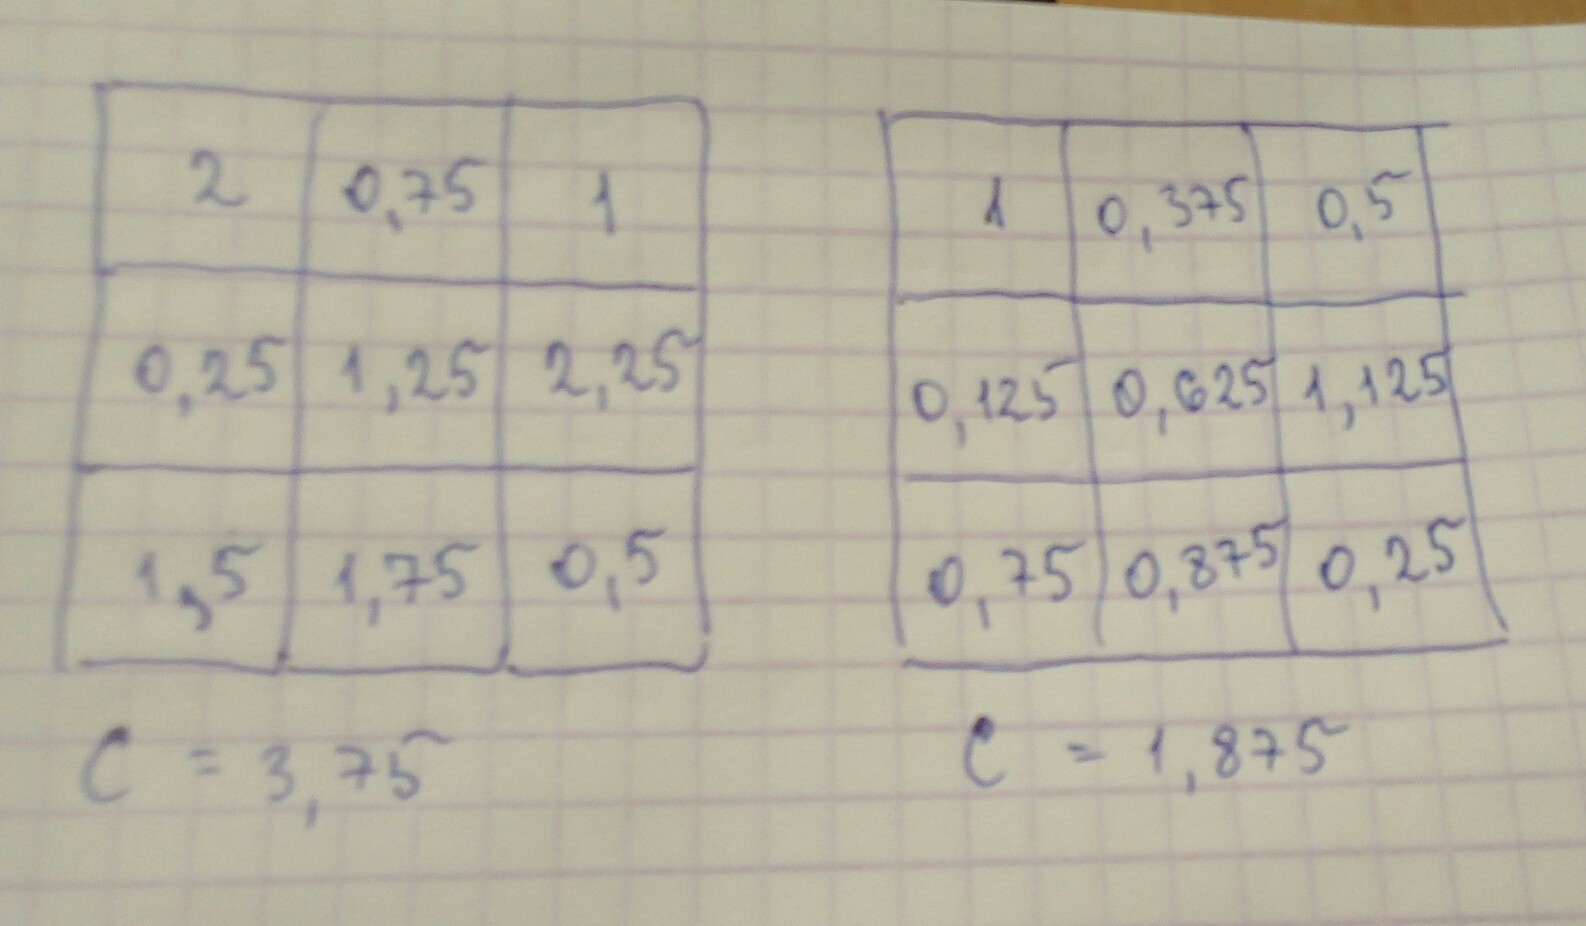 2 0,75 1
0,25 1,25 2,25
1,5 1,75 0,5
C = 3,75
1 0,375 0,5
0,125 0,625 1,125
0,75 0,875 0,25
C = 1,875